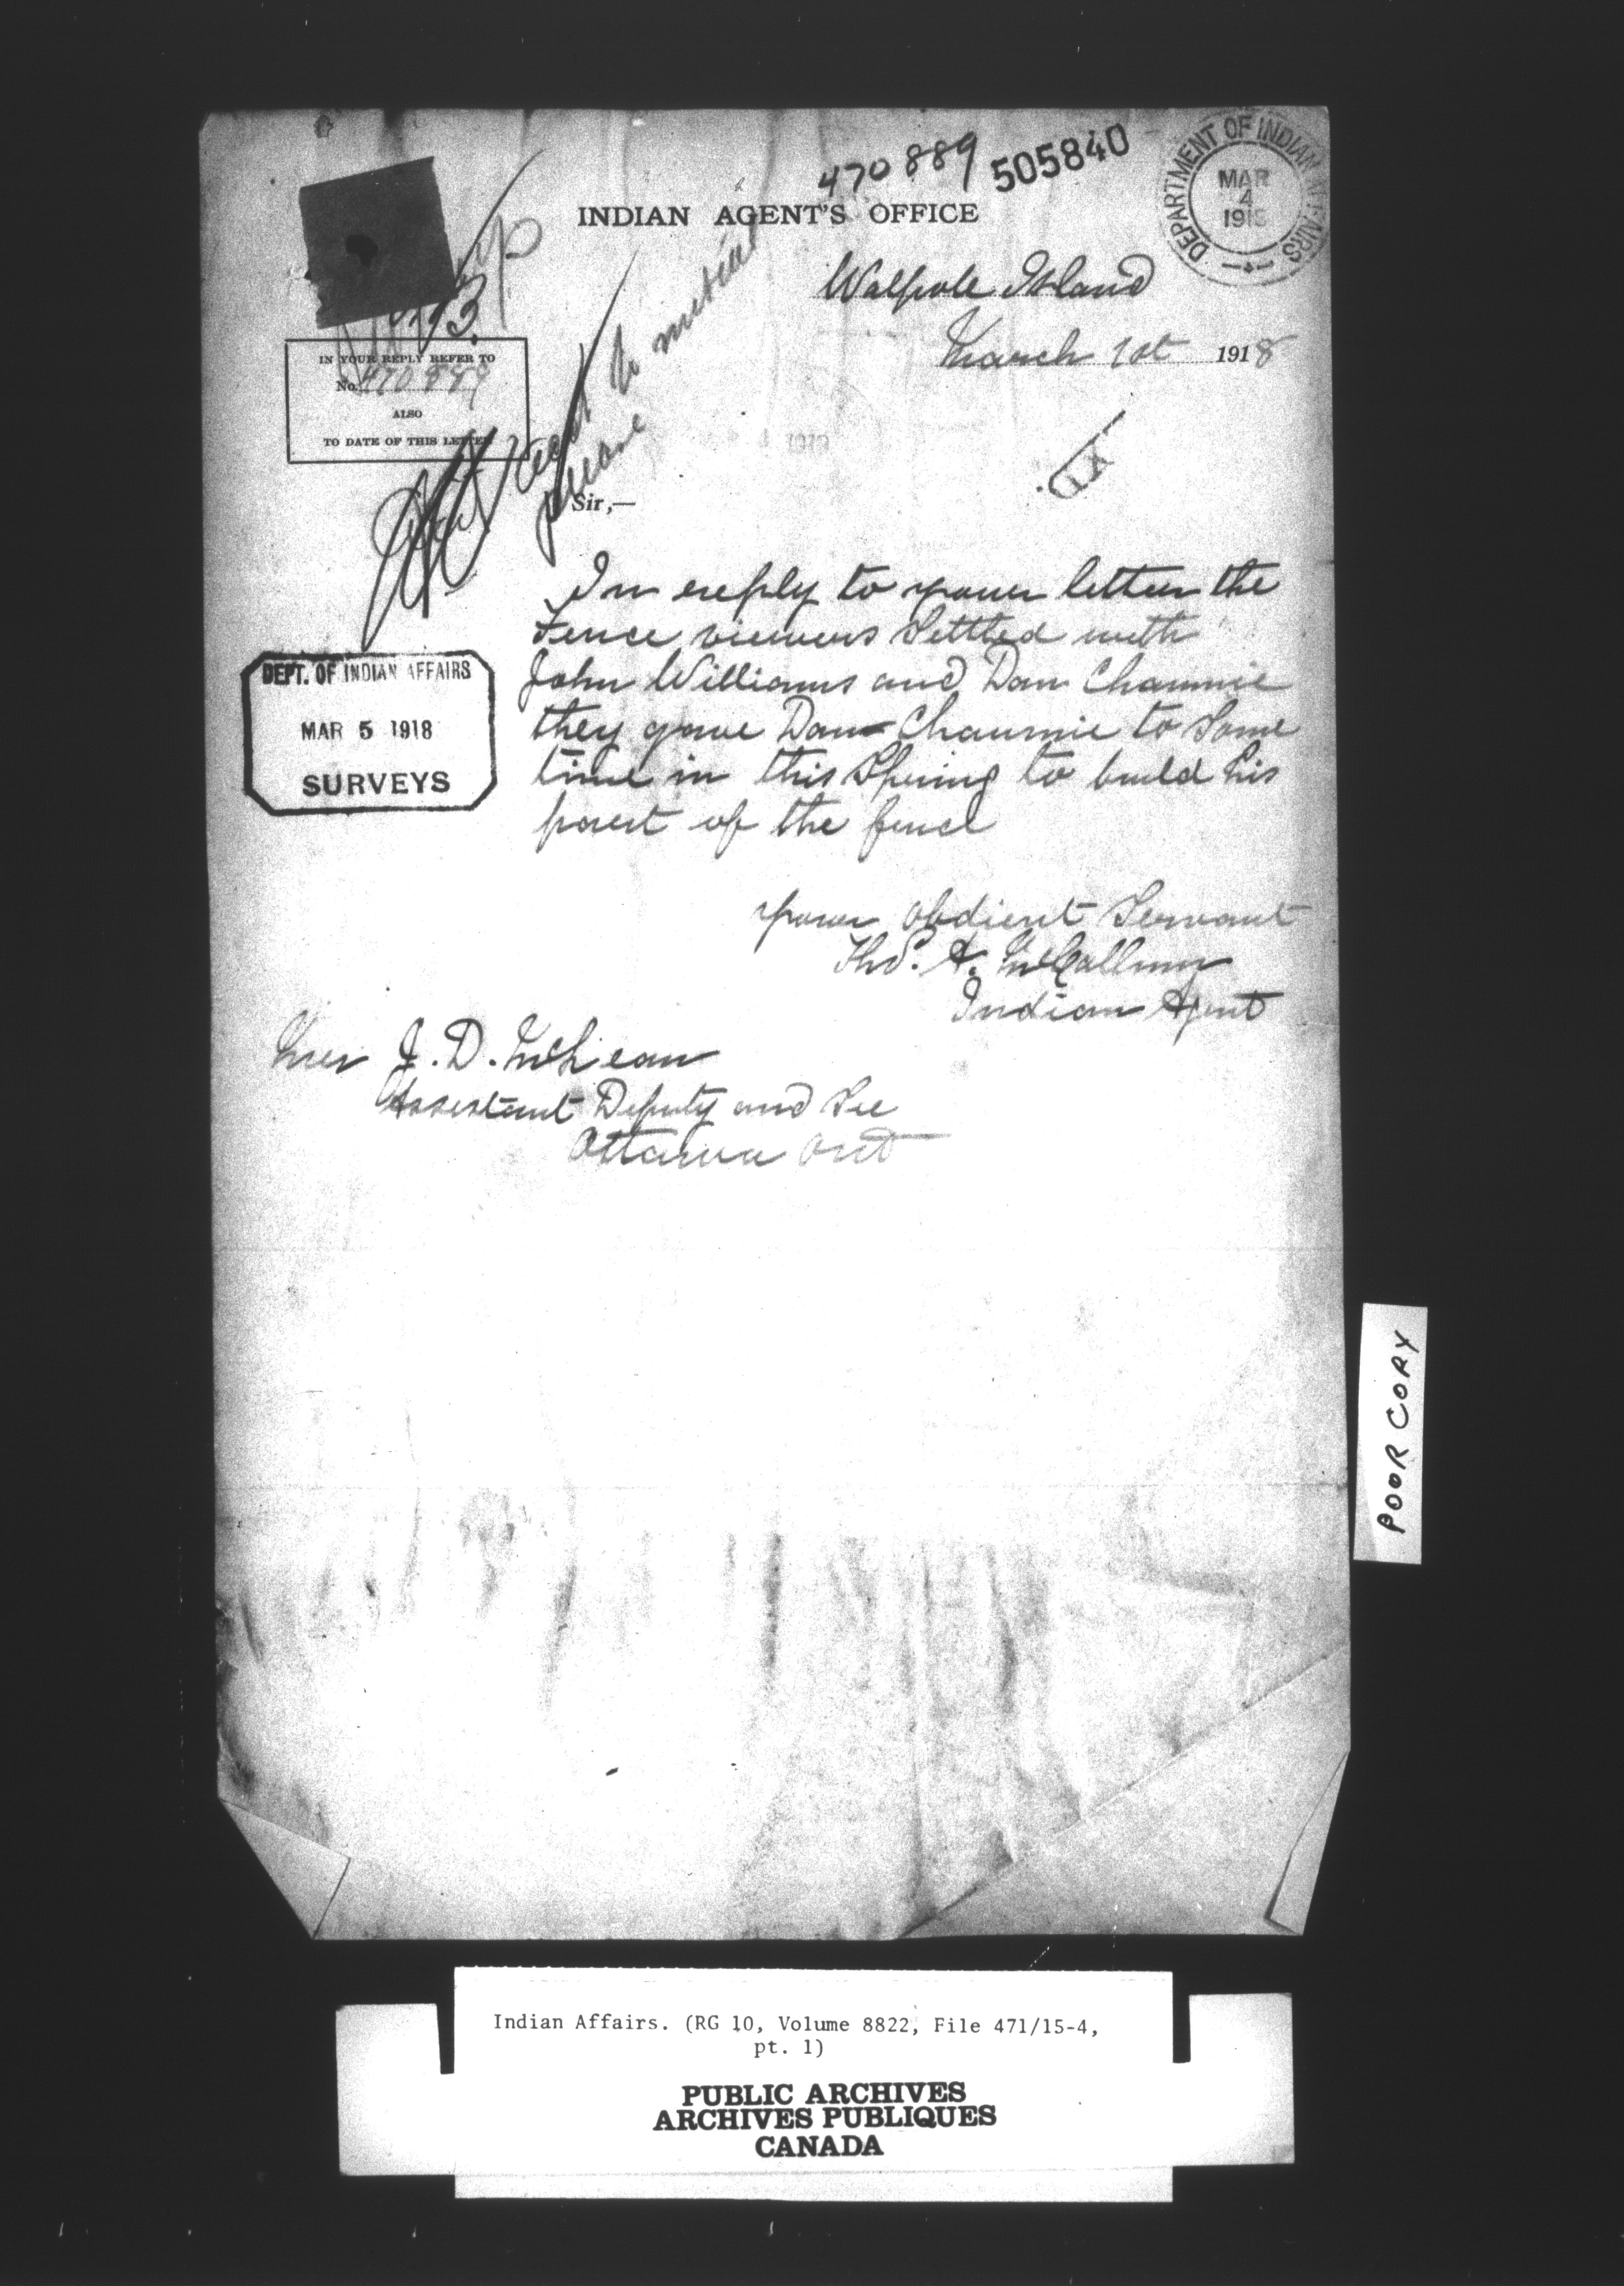 470889 505840
DEPARTMENT OF INDIAN AFFAIRS
MAR
4
1918
INDIAN AGENT'S OFFICE
Walpole Island
March 1st 1918
IN YOUR REPLY REFER TO
No. 470889
ALSO
TO DATE OF THIS LETTER
please
Sir,—
In reply to your letter the
Fence viewers Settled with
John Williams and Dan Chammie
they gave Dan Chammie to Some
time in this Spring to build his
part of the fence
DEPT. OF INDIAN AFFAIRS
MAR 5 1918
SURVEYS
your obdient Servant
Thos. A. McCallum
Indian Agent
Mr J. D. McLean
Assistant Deputy and Sec
Ottawa Ont
POOR COPY
Indian Affairs. (RG 10, Volume 8822, File 471/15-4,
pt. 1)
PUBLIC ARCHIVES
ARCHIVES PUBLIQUES
CANADA